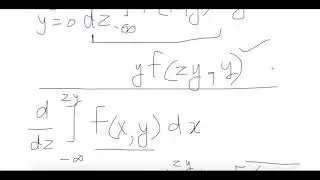 y=0 dz -∞
y f(zy, y)
d/dz ∫_{-∞}^{zy} f(x,y) dx
zy